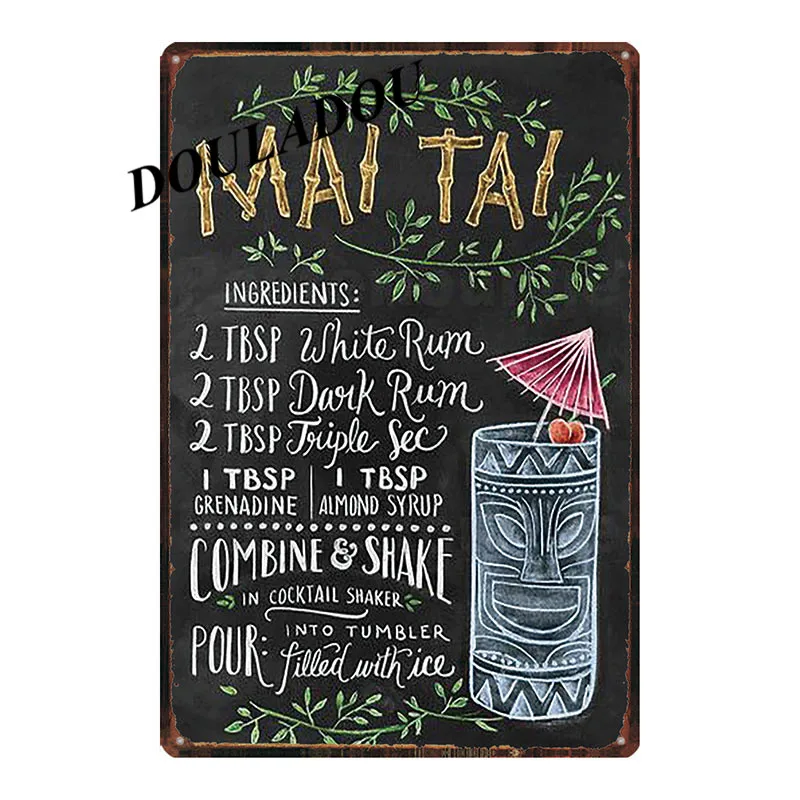 DOULADOU
MAI TAI
INGREDIENTS:
2 TBSP White Rum
2 TBSP Dark Rum
2 TBSP Triple Sec
1 TBSP GRENADINE | 1 TBSP ALMOND SYRUP
COMBINE & SHAKE
IN COCKTAIL SHAKER
POUR: INTO TUMBLER
filled with ice